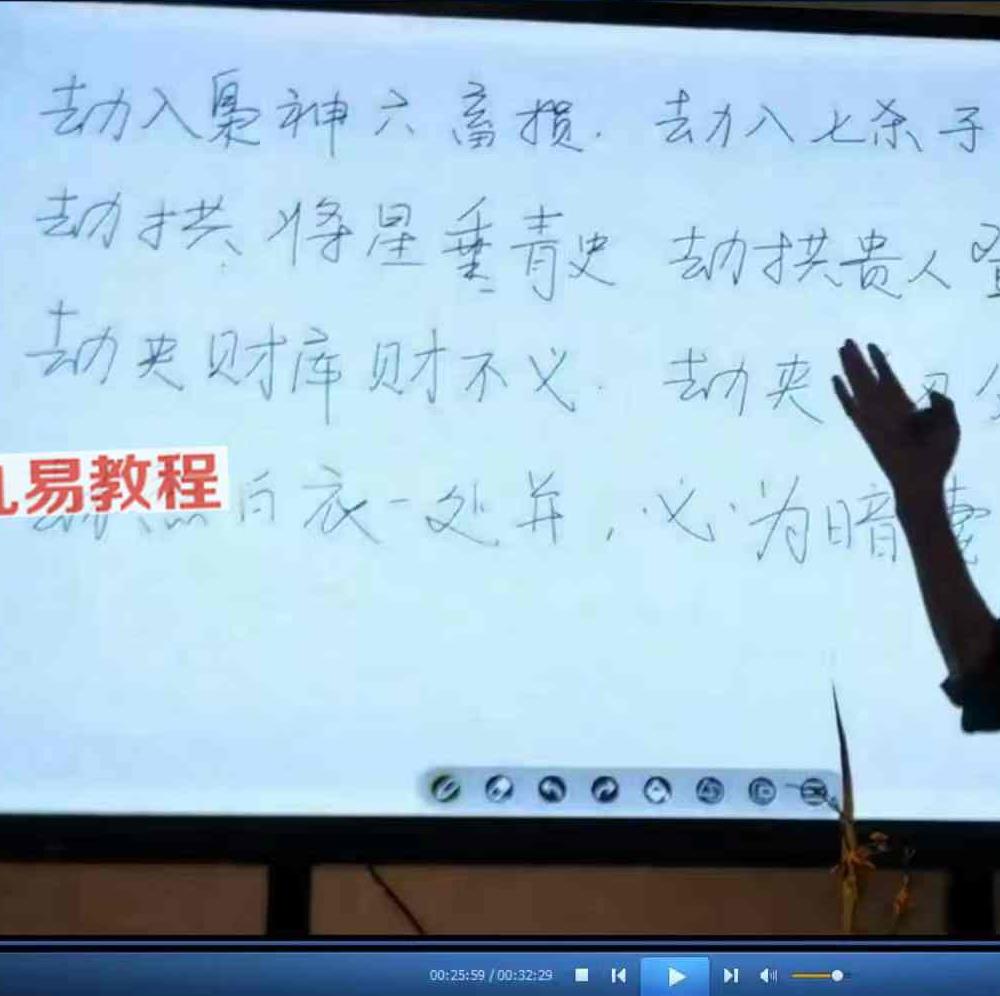 劫入枭神六畜损.劫入七杀子
劫拱将星垂青史 劫拱贵人
劫夹财库财不义.劫夹
易教程
白衣一处并,必为暗
00:25:59 / 00:32:29